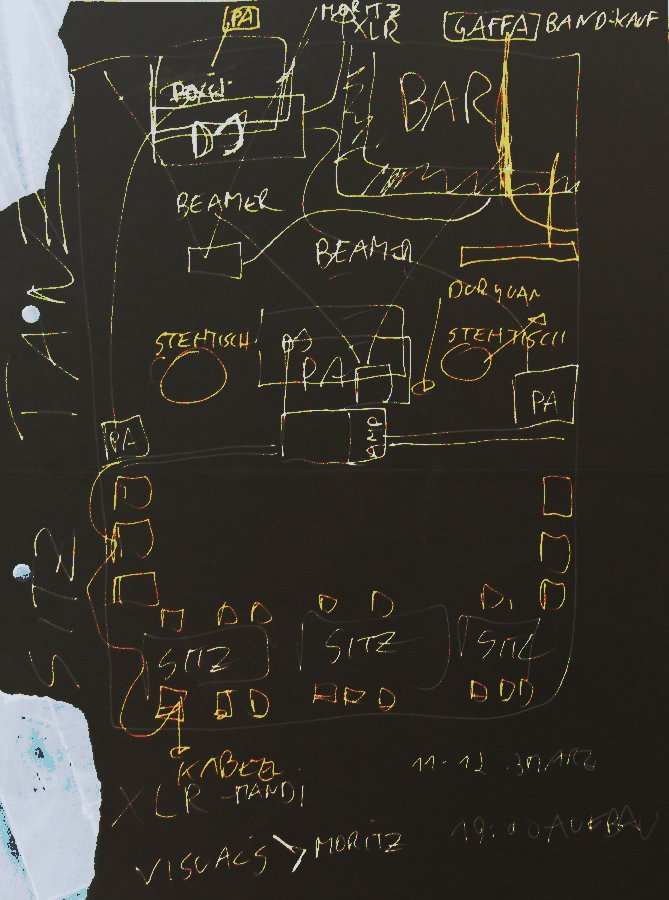 PA
MORITZ
XLR
GAFFA BAND-KAUF
DJ
BAR
BEAMER
BEAMER
TANZ
DORYUAN
STEHTISCH
STEHTISCH
PA
PA
PA
AMP
SITZ
SITZ
SITZ
SITZ
KABEL
XLR - MANDI
VISUALS > MORITZ
11-12 MÄRZ
19:00 AUFBAU